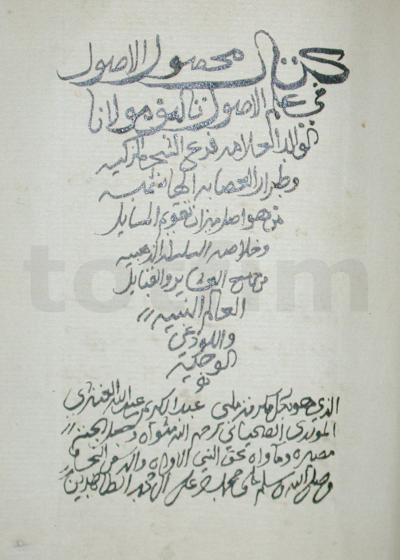 كتاب محصول الاصول
في علم الاصول تاليف مولانا
الوالد العلامه فرع الشجره الزكيه
وطراز العصابه الهاشميه
من هو اصل ميزان تقويم المسايل
وخلاصه السلسله الذهبيه
من جامع العشاير والقبايل
العالم النبيه
واللوذعي
الوجيه
الذي هو بكل مكرمة ملي عبد الكريم بن عبد الله العنثري
المؤيدي الضحياني رحمه الله مثواه وجعل الجنه
مصيره ومأواه بحق النبي الاواه واله سفن النجاه
وصلى الله وسلم على محمد وعلى ال محمد الطاهرين
toorim